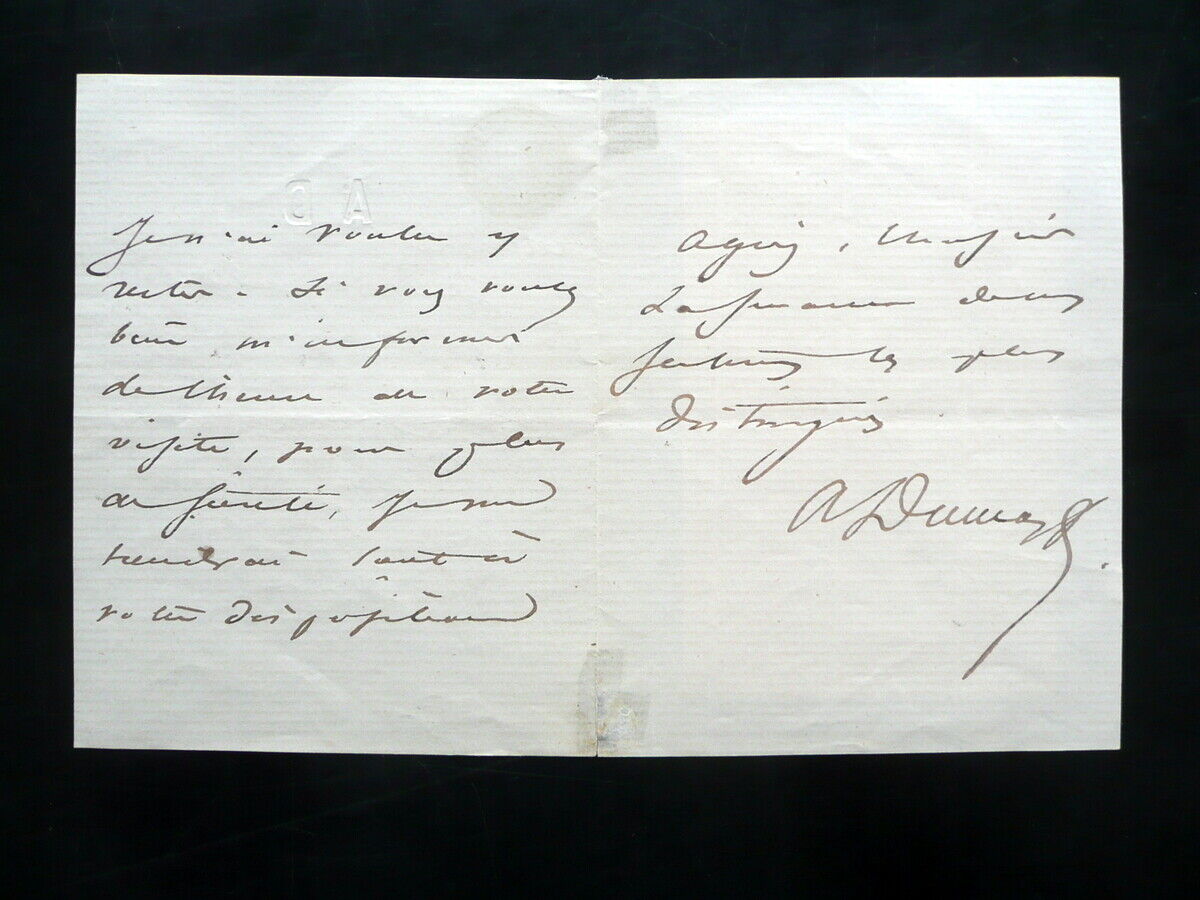 Je n'ai voulu y
rester. Si vous voulez
bien m'informer
de l'heure de votre
visite, pour plus
de sûreté, je me
tiendrai tout à
votre disposition
Agréez, Monsieur
l'assurance de mes
sentiments les plus
distingués
A Dumas f.